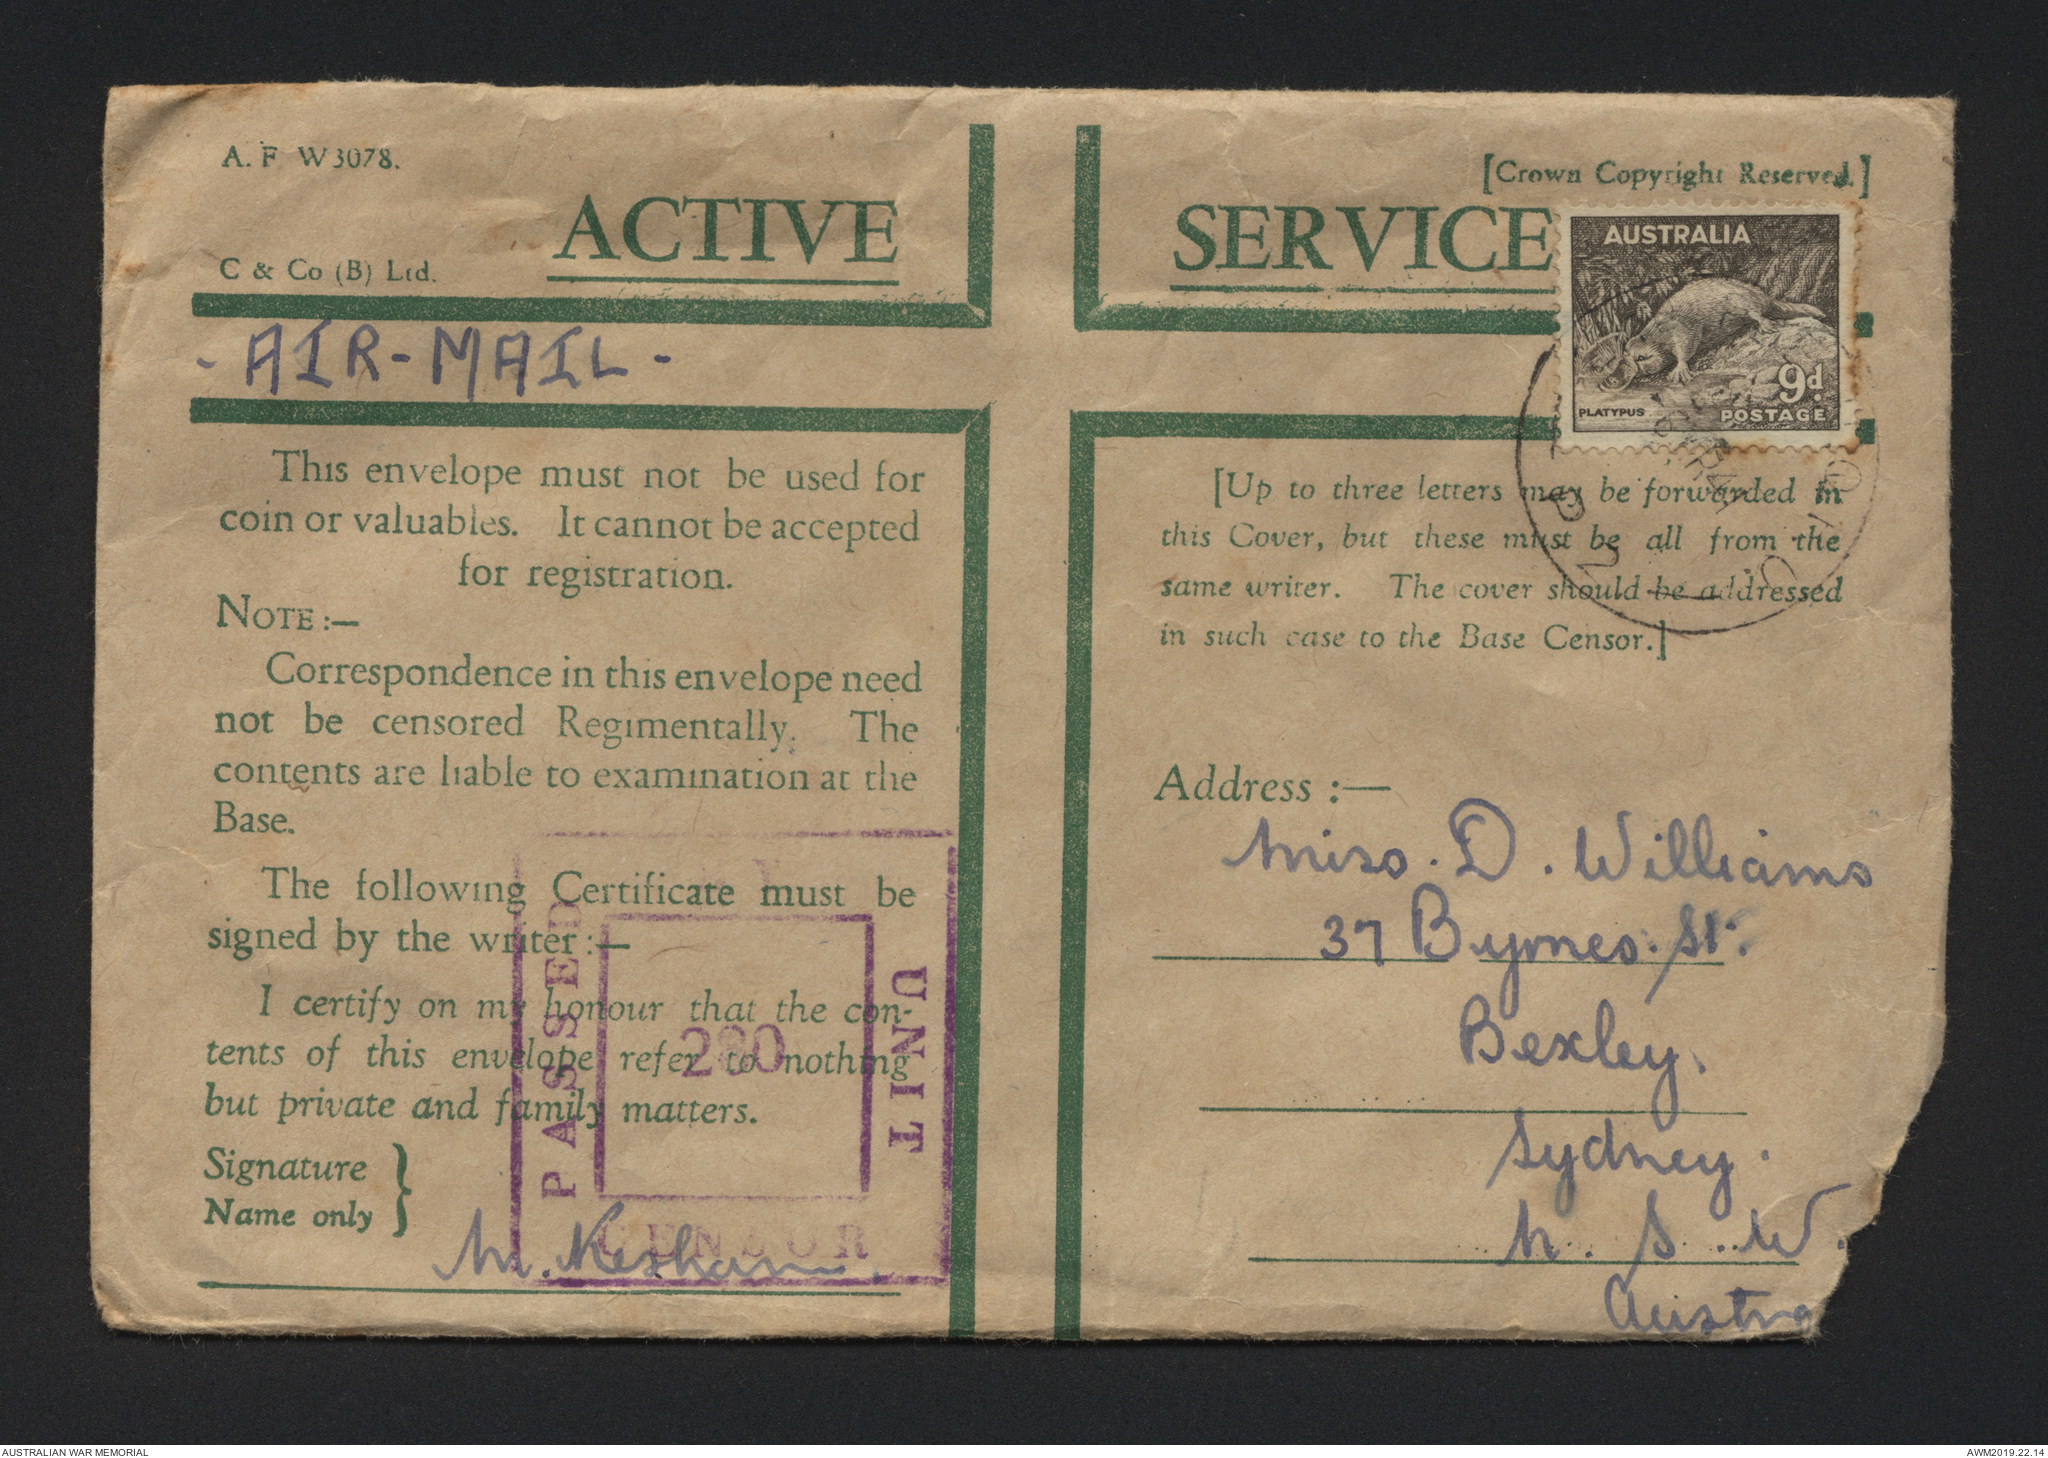 A. F W3078.
[Crown Copyright Reserved.]
ACTIVE SERVICE
C & Co (B) Ltd.
AUSTRALIA
9d
PLATYPUS POSTAGE
- AIR-MAIL -
This envelope must not be used for
coin or valuables. It cannot be accepted
for registration.
NOTE :—
Correspondence in this envelope need
not be censored Regimentally. The
contents are liable to examination at the
Base.
The following Certificate must be
signed by the writer :—
I certify on my honour that the con-
tents of this envelope refer to nothing
but private and family matters.
Signature
Name only
PASSED
UNIT
CENSOR
[Up to three letters may be forwarded in
this Cover, but these must be all from the
same writer. The cover should be addressed
in such case to the Base Censor.]
Address :—
Miss. D. Williams
37 Byrnes. St.
Bexley.
Sydney.
N. S. W.
AUSTRALIAN WAR MEMORIAL
AWM2019.22.14